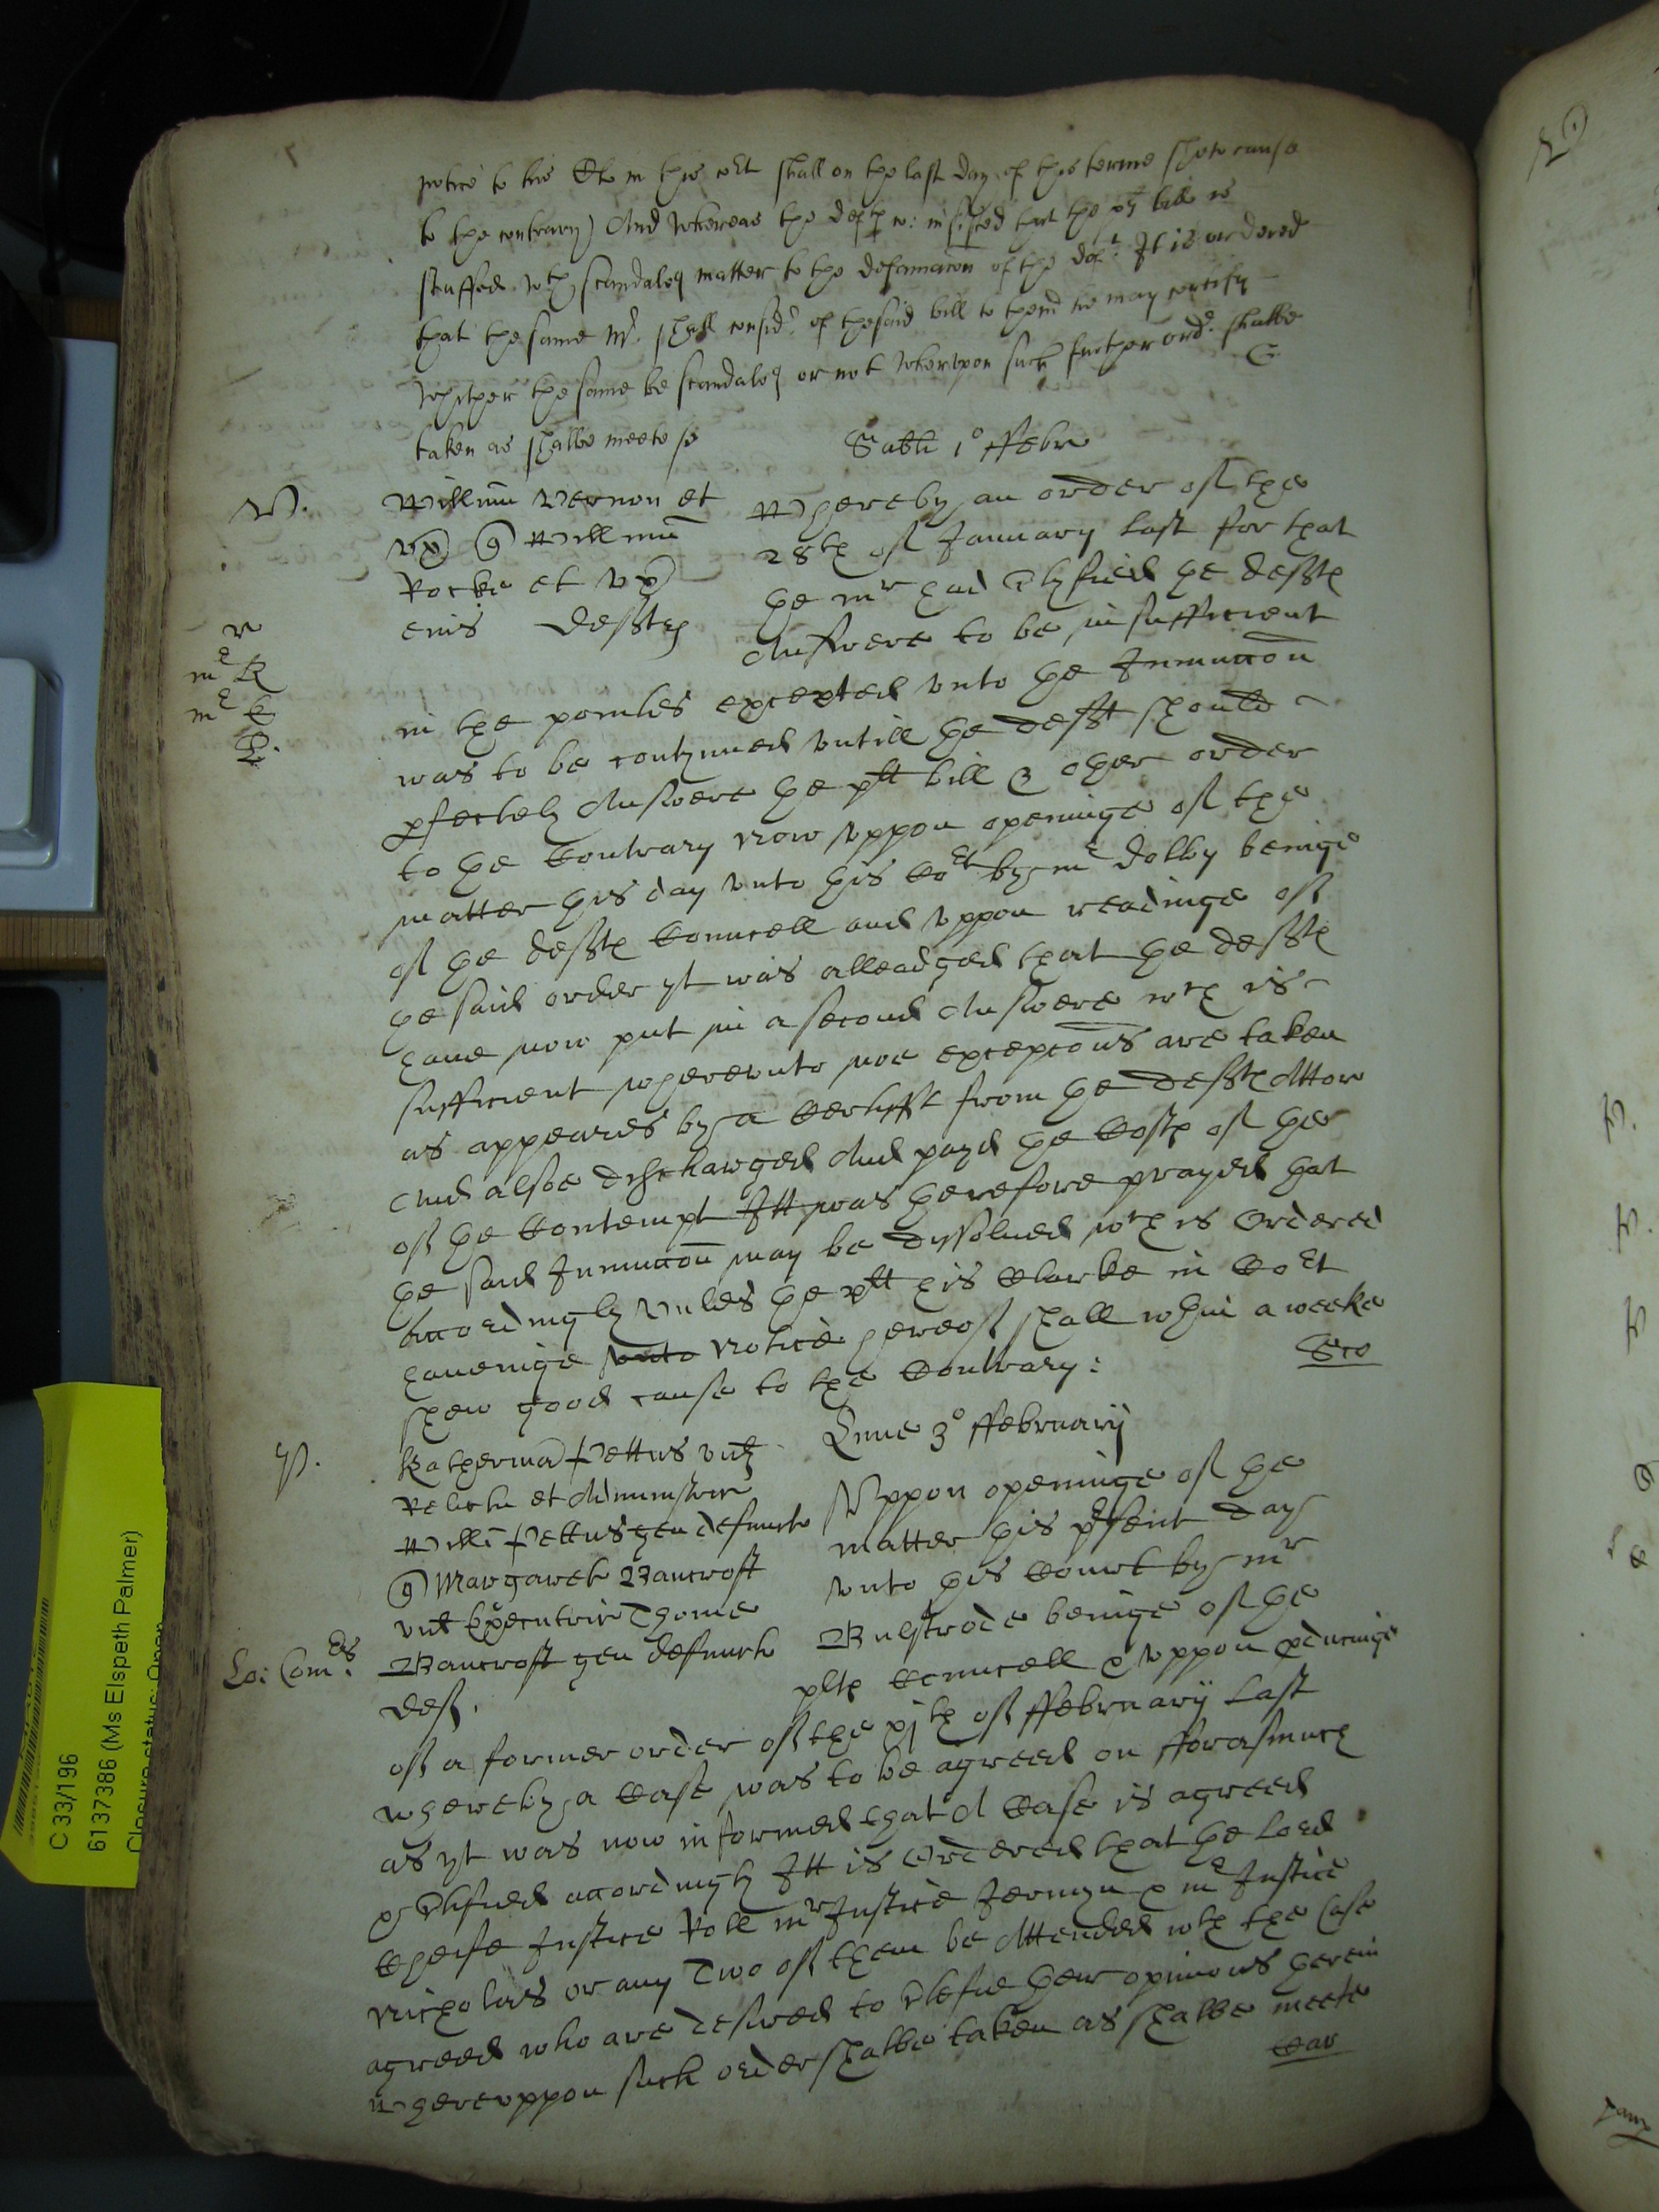 notice to his Cl in this Cort shall on the last day of this terme shew cause
to the contrary) And whereas the deftes co: insisted that the plts bill is
stuffed wth scandalos matter to the defamacon of the deft. It is ordered
that the same Mr. shall consider of the said bill to thend he may certify
whether the same be scandalos or not whereupon such further order shalbe
taken as shalbe meete
Sabti 1o ffebr
V.
Willmu Vernon et
vx Willmu
Rocke et vx
eius Defftes
Whereby an order of the
28th of January last for that
the mr had certyfied the deffts
Answere to be insufficient
in the pointes excepted vnto the Iniunccon
was to be contynued vntill the defft should
pfectely Answere the plt bill & other order
to the Contrary Now vppon openinge of the
matter this day vnto this Cort by mr dolby beinge
of the deffts Councell and vppon readinge of
the said order yt was alleadged that the deffts
haue now put in a second Answere wch is
sufficient wherevnto noe excepcons are taken
as appeares by a Certifft from the deffts Attor
And alsoe discharged And payd the Costs of the
of the Contempt Itt was therefore prayed that
the said Iniunccon may be dissolued wch is Ordered
accordingly vnles the plt his Clarke in Cort
haueinge vnto notice thereof shall wthin a weeke
shew good cause to the Contrary:
P.
Lune 3o ffebruarij
Katherina Pettus vid
Relicta et Administrix
Willi Pettus gen defuncti
Margareta Bancroft
vid Executrix Thome
Bancroft gen defuncti
def.
Lo: Comrs.
Vppon openinge of the
matter this pesent day
vnto this Court by mr
Bulstrode beinge of the
plts Councell & vppon readinge
of a former order of the xjth of ffebruarij last
whereby a Case was to be agreed on fforasmuch
as yt was now informed that A Case is agreed
& certified accordingly Itt is Ordered that the Lord
Cheife Justice Roll mr Justice Jermyn & mr Justice
Nicholas or any Two of them be Attended wth the Case
agreed who are desired to certefie their opinions therein
wherevppon such order shalbe taken as shalbe meete
C 33/196
6137386 (Ms Elspeth Palmer)
Closure status: Open